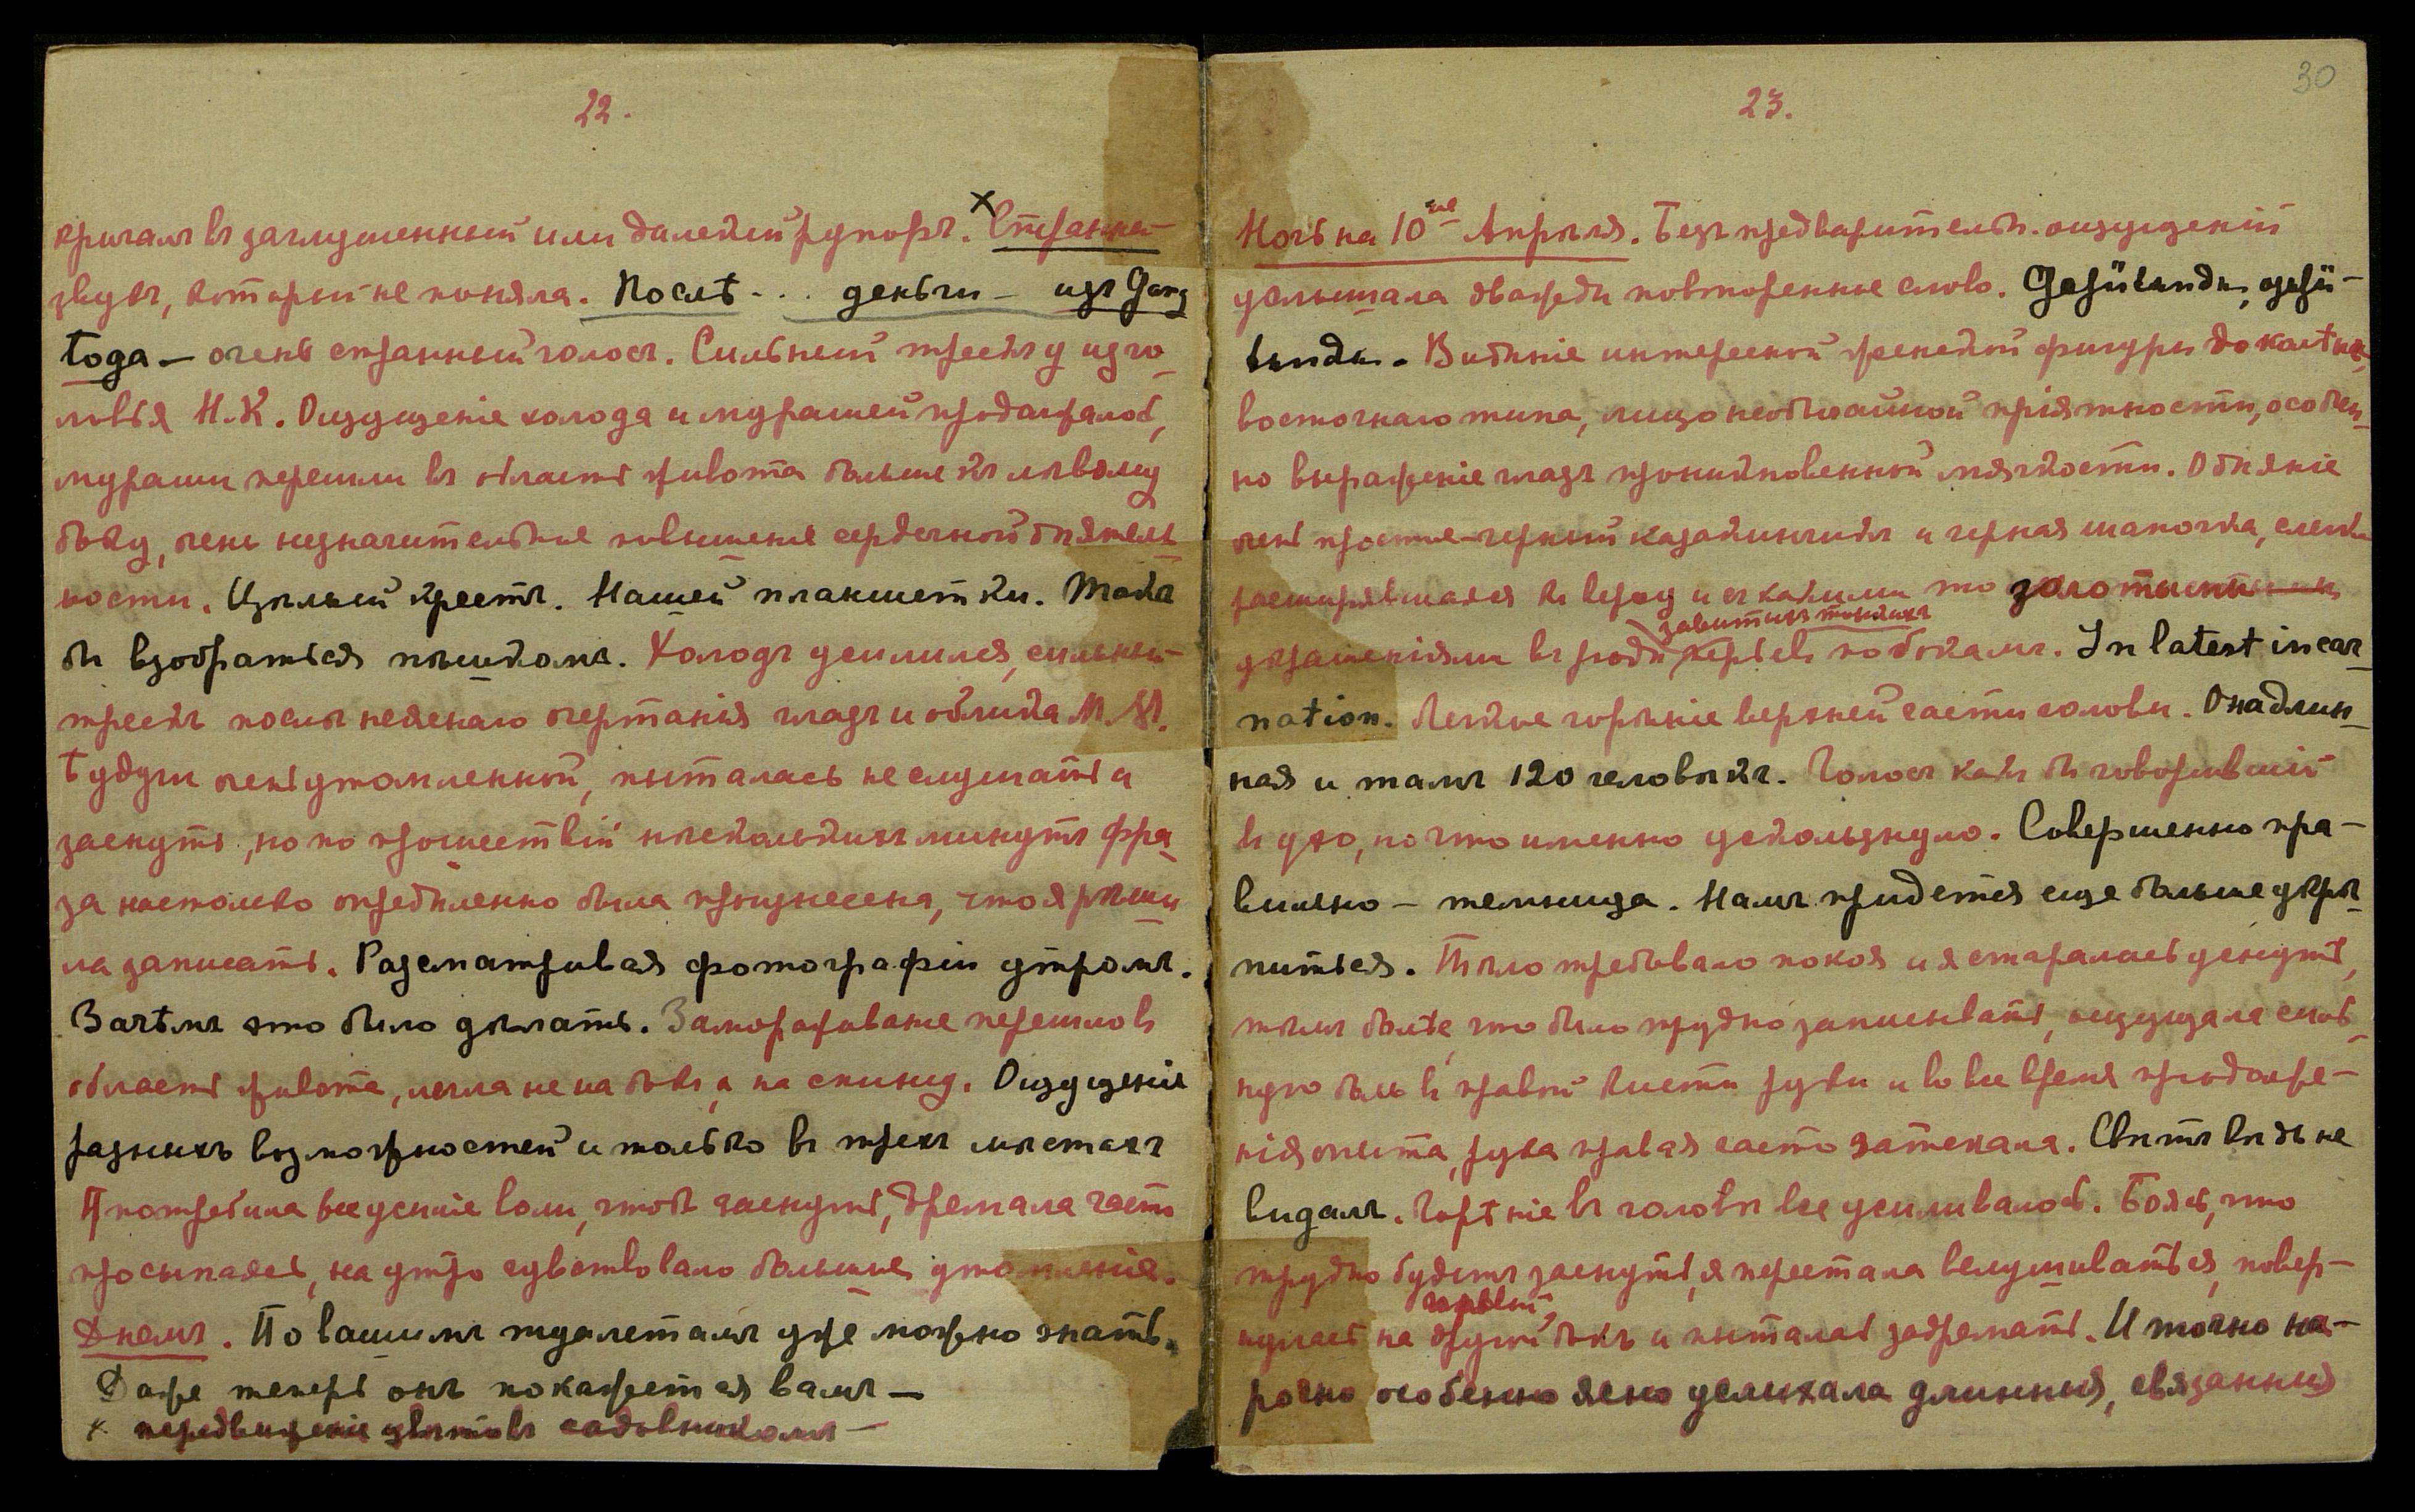 22.
кричалъ въ заглушенный или далекій рупоръ. ˣ Странные
звуки, который не поняла. Послѣ... деньги – изъ Gang
тода — очень странный голосъ. Сильный трескъ у изго-
ловья Н.К. Ощущеніе холода и мурашей продолжалось,
мураши перешли въ область живота больше къ лѣвому
боку, очень незначительное повышеніе сердечной дѣятель-
ности. Цѣлый крестъ. Нашей планшетки. Такъ
бы взобраться пѣшкомъ. Холодъ усилился, сильный
трескъ послѣ неяснаго очертанія глазъ и облика М.М.
Будучи очень утомленной, пыталась не слушать и
заснуть, но по прошествіи нѣсколькихъ минутъ фра-
за настолько опредѣленно была произнесена, что я рѣши-
ла записать. Разсматривая фотографіи утромъ.
Зачѣмъ это было дѣлать. Замораживаніе перешло въ
область живота, легла не на бокъ, а на спину. Ощущенія
разныхъ возможностей и только въ трехъ мѣстахъ
Я потребила все усиліе воли, чтобъ заснуть, дремала часто
просыпаясь, на утро чувствовала большое утомленіе.
Днемъ. По вашимъ туалетамъ уже можно знать.
Даже теперь онъ покажется вамъ —
× передвиженіе цвѣтовъ садовникомъ —
30
23.
Ночь на 10ое Апрѣля. Безъ предварительн. ощущеній
услышала дважды повторенное слово.
Видѣніе интересной женской фигуры до колѣнъ,
восточнаго типа, лицо необычайной пріятности, особен-
но выраженіе глазъ проникновенной мягкости. Одѣяніе
очень простое – черный казакинчикъ и черная шапочка, слегка
расширявшаяся къ верху и съ какими то золотыми
украшеніями въ родѣ завитыхъ тонкихъ перьевъ по бокамъ. In latest incar-
nation. Легкое горѣніе верхней части головы. Она длин-
ная и тамъ 120 человѣкъ. Голосъ какъ бы говорившій
въ ухо, но что именно ускользнуло. Совершенно пра-
вильно – темница. Намъ придется еще больше укрѣ-
питься. Тѣло требовало покоя и я старалась уснуть,
тѣмъ болѣе, что было трудно записывать, ощущала силь-
ную боль въ правой кисти руки и во все время продолже-
нія опыта, рука правая часто затекала. Свѣтъ вѣдь не
видалъ. Горѣніе въ головѣ все усиливалось. Боясь, что
трудно будетъ заснуть, я перестала вслушиваться, повер-
нулась на другой бокъ и пыталась задремать. И точно на-
рочно особенно ясно услыхала длинныя, связанныя